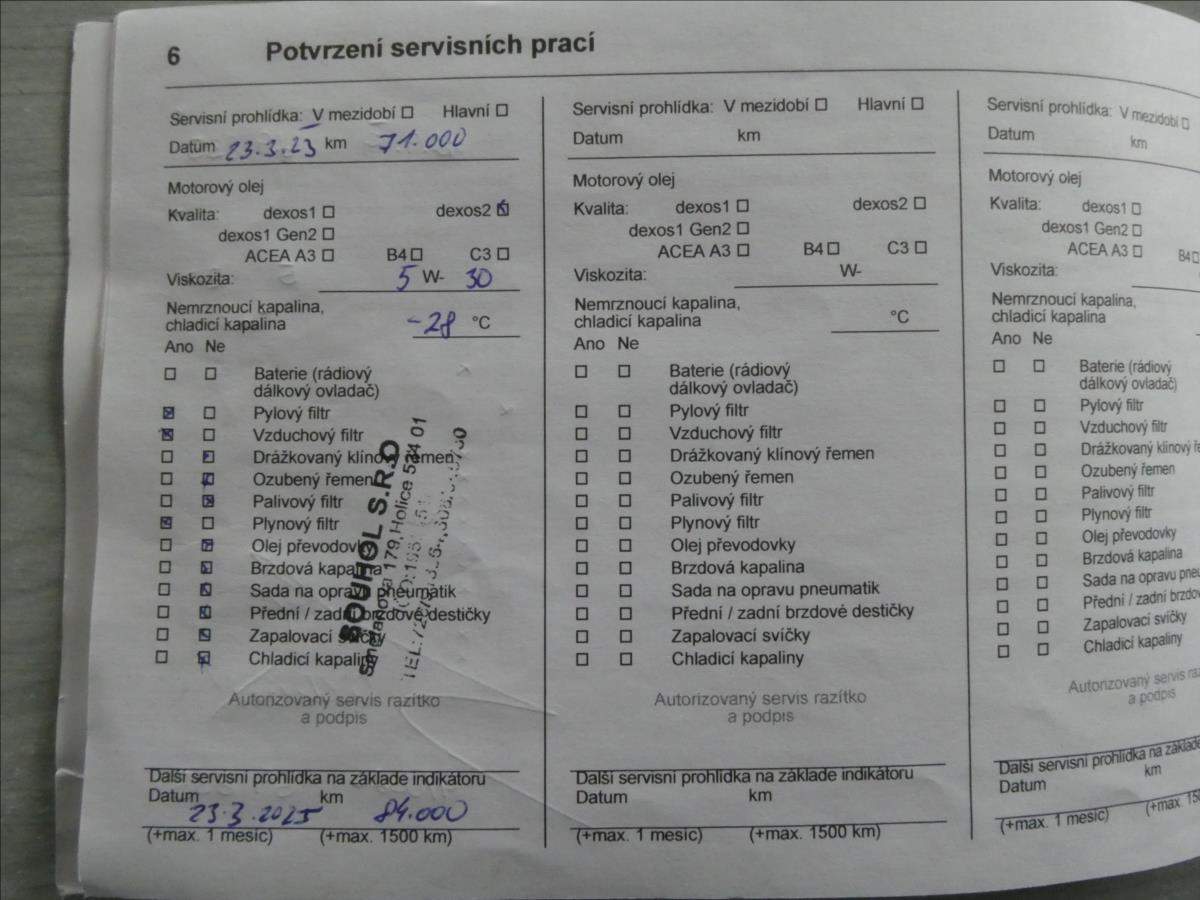 6 Potvrzení servisních prací
Servisní prohlídka: V mezidobí Hlavní
Datum 23.3.23 km 71.000
Motorový olej
Kvalita: dexos1 dexos2
dexos1 Gen2
ACEA A3 B4 C3
Viskozita: 5 W- 30
Nemrznoucí kapalina,
chladicí kapalina -28 °C
Ano Ne
Baterie (rádiový
dálkový ovladač)
Pylový filtr
Vzduchový filtr
Drážkovaný klínový řemen
Ozubený řemen
Palivový filtr
Plynový filtr
Olej převodovky
Brzdová kapalina
Sada na opravu pneumatik
Přední / zadní brzdové destičky
Zapalovací svíčky
Chladicí kapaliny
BOUHOL S.R.O
179, Holice 534 01
Autorizovaný servis razítko
a podpis
Další servisní prohlídka na základě indikátoru
Datum km
23.3.2025 84.000
(+max. 1 měsíc) (+max. 1500 km)
Servisní prohlídka: V mezidobí Hlavní
Datum km
Motorový olej
Kvalita: dexos1 dexos2
dexos1 Gen2
ACEA A3 B4 C3
Viskozita: W-
Nemrznoucí kapalina,
chladicí kapalina °C
Ano Ne
Baterie (rádiový
dálkový ovladač)
Pylový filtr
Vzduchový filtr
Drážkovaný klínový řemen
Ozubený řemen
Palivový filtr
Plynový filtr
Olej převodovky
Brzdová kapalina
Sada na opravu pneumatik
Přední / zadní brzdové destičky
Zapalovací svíčky
Chladicí kapaliny
Autorizovaný servis razítko
a podpis
Další servisní prohlídka na základě indikátoru
Datum km
(+max. 1 měsíc) (+max. 1500 km)
Servisní prohlídka: V mezidobí
Datum km
Motorový olej
Kvalita: dexos1
dexos1 Gen2
ACEA A3 B4
Viskozita:
Nemrznoucí kapalina,
chladicí kapalina
Ano Ne
Baterie (rádiový
dálkový ovladač)
Pylový filtr
Vzduchový filtr
Drážkovaný klínový ře
Ozubený řemen
Palivový filtr
Plynový filtr
Olej převodovky
Brzdová kapalina
Sada na opravu pneu
Přední / zadní brzdo
Zapalovací svíčky
Chladicí kapaliny
Autorizovaný servis ra
a podpis
Další servisní prohlídka na základě
Datum km
(+max. 1 měsíc) (+max. 150